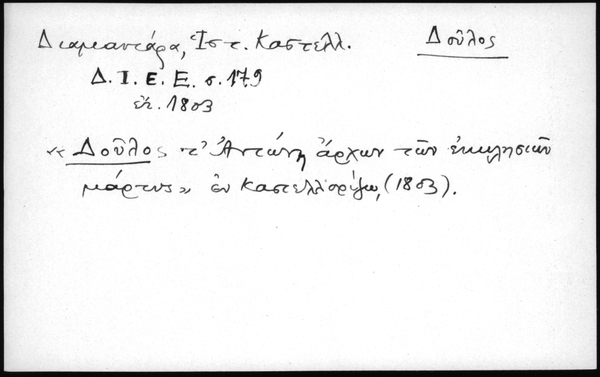 Διαμαντάρα, Ἱστ. Καστελλ. Δοῦλος
Δ. Ι. Ε. Ε. σ. 179
ἔτ. 1803
« Δοῦλος τ' Ἀντώνη ἄρχων τῶν ἐκκλησιῶν
μάρτυς » ἐν Καστελλορίζῳ, (1803).